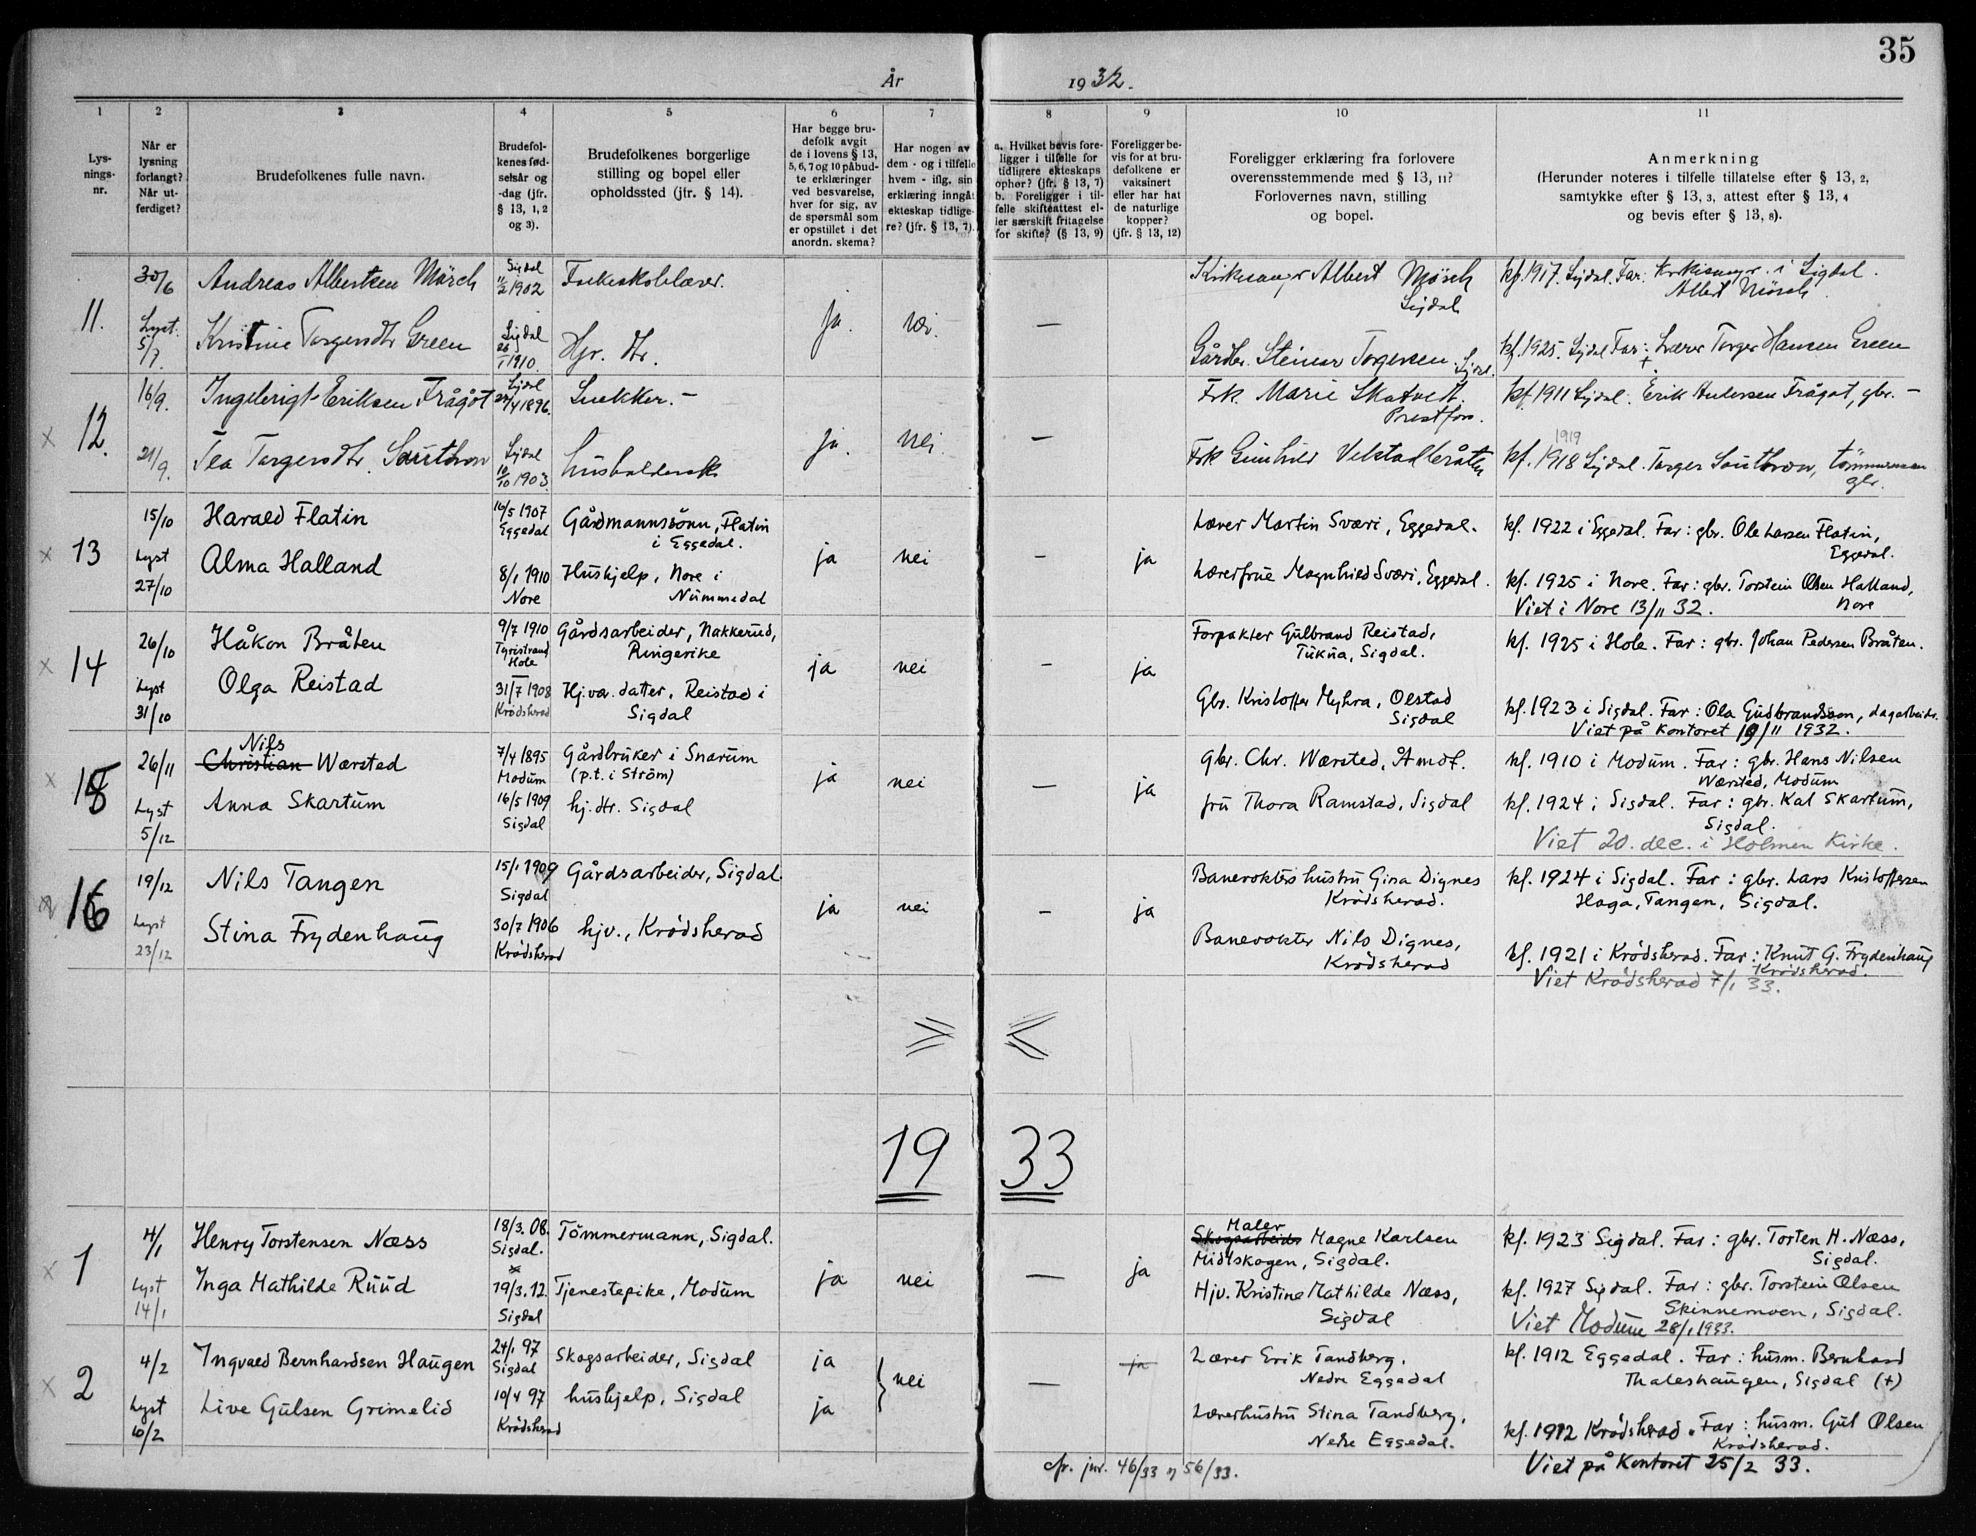 35
År 1932.
1 2 3 4 5 6 7 8 9 10 11
Lys-
nings-
nr.
Når er
lysning
forlangt?
Når ut-
ferdiget?
Brudefolkenes fulle navn.
Brudefol-
kenes fød-
selsår og
-dag (jfr.
§ 13, 1, 2
og 3).
Brudefolkenes borgerlige
stilling og bopel eller
opholdssted (jfr. § 14).
Har begge bru-
defolk avgit
de i lovens § 13,
5, 6, 7 og 10 påbud-
te erklæringer
ved besvarelse,
hver for sig, av
de spørsmål som
er opstillet i det
anordn. skema?
Har nogen av
dem - og i tilfelle
hvem - iflg. sin
erklæring inngåt
ekteskap tidlige-
re? (jfr. § 13, 7).
a. Hvilket bevis fore-
ligger i tilfelle for
tidligere ekteskaps
ophør? (jfr. § 13, 7)
b. Foreligger i til-
felle skifteattest el-
ler særskilt fritagelse
for skifte? (§ 13, 9)
Foreligger be-
vis for at bru-
defolkene er
vaksinert
eller har hat
de naturlige
kopper?
(jfr. § 13, 12)
Foreligger erklæring fra forlovere
overensstemmende med § 13, 11?
Forlovernes navn, stilling
og bopel.
Anmerkning
(Herunder noteres i tilfelle tillatelse efter § 13, 2,
samtykke efter § 13, 3, attest efter § 13, 4
og bevis efter § 13, 8).
11.
30/6
Lyst
5/7.
Andreas Albertsen Mörch
Sigdal
11/2 1902
Folkeskolelærer.
Kristine Torgersdtr Green
Sigdal
26/1 1910.
Hjv. dtr.
ja. nei. —
Kirkesanger Albert Mörch
Sigdal
Gårdbr. Steinar Torgersen Sigdal.
kf. 1917. Sigdal. Far: Kirkesanger i Sigdal.
Albert Mörch
kf. 1925. Sigdal Far: Lærer Torger Hansen Green
+
x 12.
16/9.
21/9.
Ingebrigt Eriksen Frågåt
Sigdal
27/4 1896.
Snekker. —
Tea Torgersdtr.
Sigdal
10/10 1903.
husholderske
ja. nei —
Frk. Marie Skatvedt.
Prestfoss.
Frk Gunhild
kf 1911 Sigdal. Erik Andersen Frågåt, gbr. —
1919
kf. 1918 Sigdal. Torger tömmermann
gbr.
x 13
15/10
Lyst
27/10
Harald Flatin
16/5 1907
Eggedal
Gårdmannssönn, Flatin
i Eggedal.
Alma Halland
8/1 1910
Nore
Hushjelp, Nore i
Nummedal
ja nei — ja
Lærer Martin Sværi, Eggedal.
Lærerfrue Magnhild Sværi, Eggedal.
kf. 1922 i Eggedal. Far: gbr. Ole Larsen Flatin,
Eggedal.
kf. 1925 i Nore. Far: gbr. Torstein Olsen Halland,
Nore
Viet i Nore 13/11 32.
x 14
26/10
Lyst
31/10
Håkon Bråten
9/7 1910
Tyristrand
Hole
Gårdsarbeider, Nakkerud,
Ringerike
Olga Reistad
31/7 1908
Krödsherad
Hj.vær. datter, Reistad i
Sigdal
ja nei — ja
Forpakter Gulbrand Reistad,
Tukna, Sigdal.
Gbr. Kristoffer Myhra, Olstad
Sigdal
kf. 1925 i Hole. Far: gbr. Johan Pedersen Bråten.
kf. 1923 i Sigdal. Far: Ola Gudbrandsson, dagarbeider.
Viet på kontoret 19/11 1932.
x 15
26/11
Lyst
5/12
Nils
Christian Wærsted
7/4 1895
Modum
Gårdbruker i Snarum
(p.t. i Ström)
Anna Skartum
16/5 1909
Sigdal
hj. dtr. Sigdal
ja nei — ja
gbr. Chr. Wærsted, Åmot.
fru Thora Ramstad, Sigdal
kf. 1910 i Modum. Far: gbr. Hans Nilsen
Wærsted, Modum
kf. 1924 i Sigdal. Far: gbr. Kal Skartum,
Sigdal.
Viet 20. dec. i Holmen Kirke.
x 16
19/12
Lyst
23/12
Nils Tangen
15/1 1909
Sigdal
Gårdsarbeider, Sigdal
Stina Frydenhaug
30/7 1906
Krödsherad
hjv., Krödsherad
ja nei — ja
Banevokters hustru Gina Dignes
Krödsherad.
Banevokter Nils Dignes,
Krödsherad
kf. 1924 i Sigdal. Far: gbr. Lars Kristoffersen
Haga, Tangen, Sigdal.
kf. 1921 i Krödsherad. Far: Knut G. Frydenhaug
Krödsherad.
Viet Krödsherad 7/1 33.
19 33
x 1
4/1
Lyst
14/1
Henry Torstensen Næss
18/3. 08.
Sigdal.
Tömmermann, Sigdal.
Inga Mathilde Ruud
x
19/3. 12.
Sigdal
Tjenestepike, Modum
ja nei — ja
Maler
Skogsarbeider Magne Karlsen
Midtskogen, Sigdal.
Hjv. Kristine Mathilde Næss,
Sigdal
kf. 1923 Sigdal. Far: gbr. Torsten H. Næss,
Sigdal.
kf. 1927 Sigdal. Far: gbr. Torstein Olsen
Skinnemoen, Sigdal.
Viet Modum 28/1 1933.
x 2
4/2
Lyst
10/2
Ingvald Bernhardsen Haugen
24/1 97
Sigdal
Skogsarbeider, Sigdal
Live Gulsen Grimelid
10/4 97
Krödsherad
hushjelp, Sigdal
ja
ja
} nei — ja
Lærer Erik Tandberg.
Nedre Eggedal
Lærerhustru Stina Tandberg,
Nedre Eggedal.
kf. 1912 Eggedal. Far: husm. Bernhard
Thaleshaugen, Sigdal (+)
kf. 1912 Krödsherad. Far: husm. Gul Olsen
Krödsherad.
cfr. jnr. 46/33 og 56/33.
Viet på Kontoret 25/2 33.